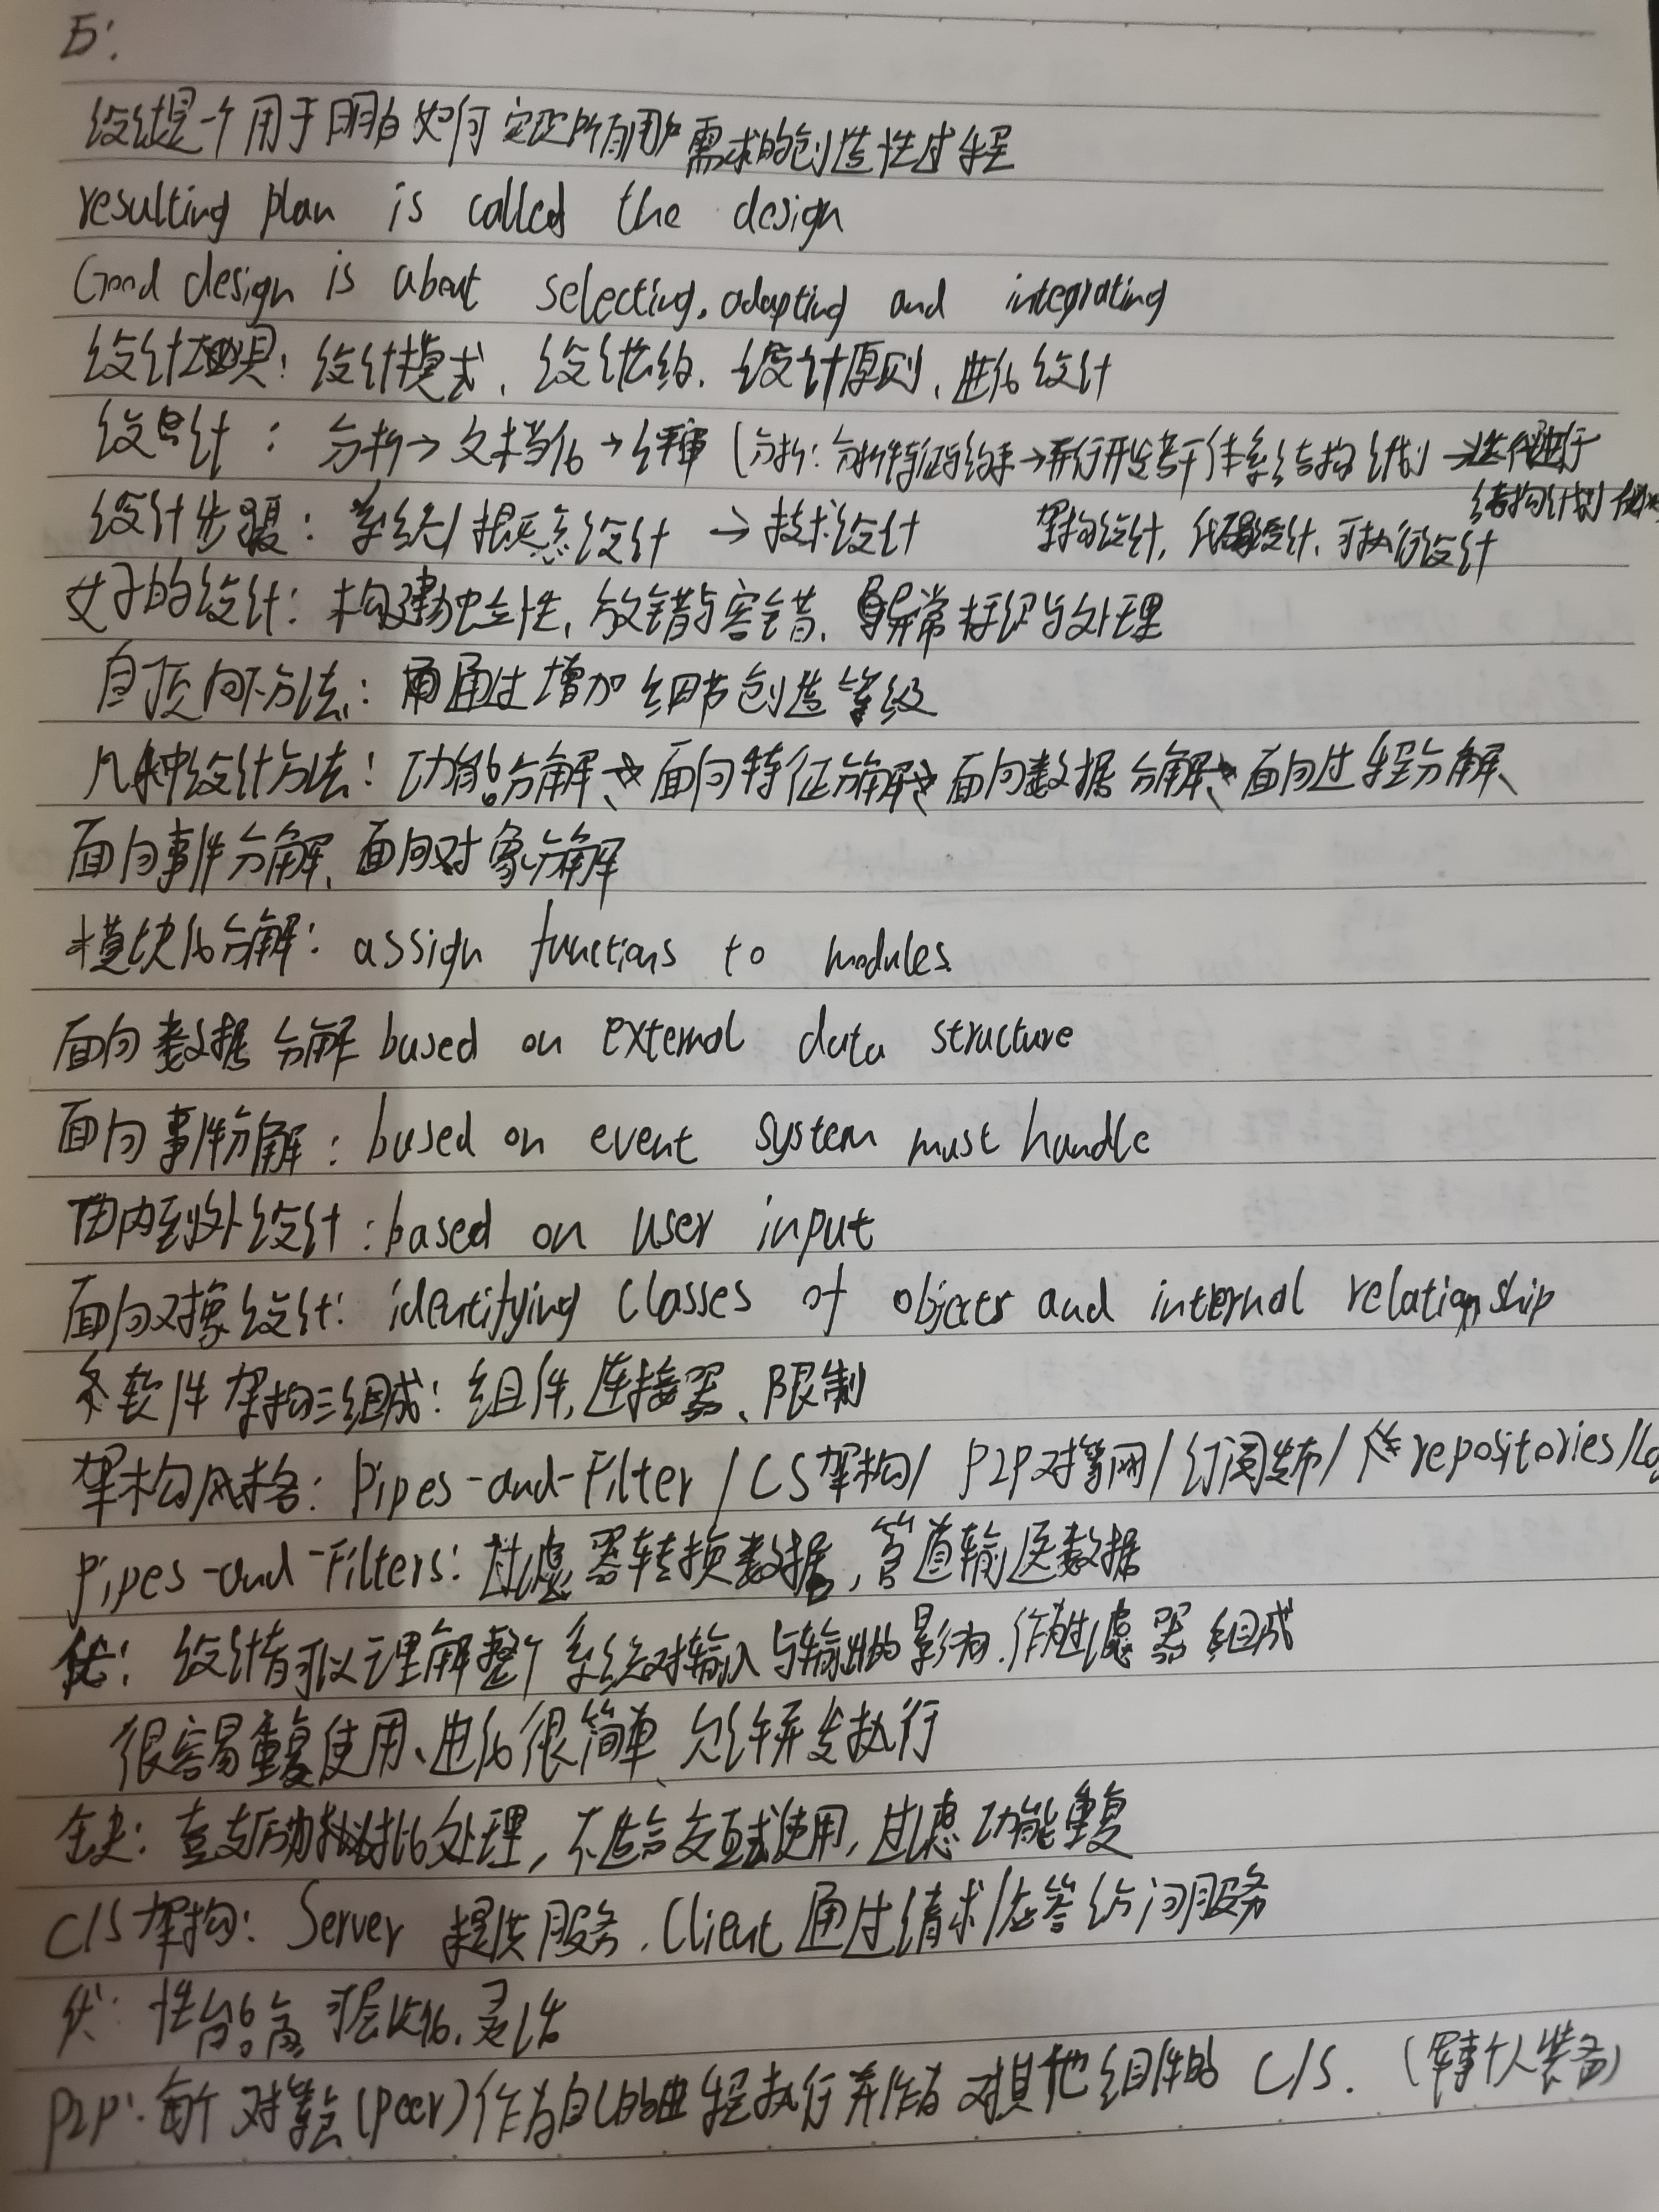 5:
设计是一个用于明白如何实现所有用户需求的创造性过程
resulting plan is called the design
Good design is about selecting, adapting and integrating
设计工具: 设计模式、设计公约、设计原则、进化设计
设计: 分析→文档化→ (分析: 分析特征与约束→并行开发若干体系结构计划→迭代进行
结构计划
设计步骤: 系统/概念设计 → 技术设计 架构设计, 代码设计, 可执行设计
好的设计: 构建独立性, 放错与容错, 异常标识与处理
自顶向下方法: 通过增加细节创造等级
几种设计方法: 功能分解、面向特征分解、面向数据分解、面向过程分解、
面向事件分解、面向对象分解
模块化分解: assign functions to modules
面向数据分解 based on external data structure
面向事件分解: based on event system must handle
由内到外设计: based on user input
面向对象设计: identifying classes of objects and internal relationship
软件架构三组成: 组件, 连接器、限制
架构风格: Pipes-and-Filter / CS架构 / P2P对等网 / 订阅发布 / repositories /
Pipes-and-Filters: 过滤器转换数据, 管道输送数据
优: 设计者可以理解整个系统对输入与输出的影响, 作为过滤器组成
很容易重复使用、进化很简单、允许并发执行
缺: 鼓励批处理, 不适合交互式使用, 过滤功能重复
C/S架构: Server 提供服务, Client 通过请求/应答访问服务
优: 性能高 可层次化, 灵活
P2P: 每个对等点(peer)作为自己的进程执行并作为对其他组件的 C/S. (军事个人装备)